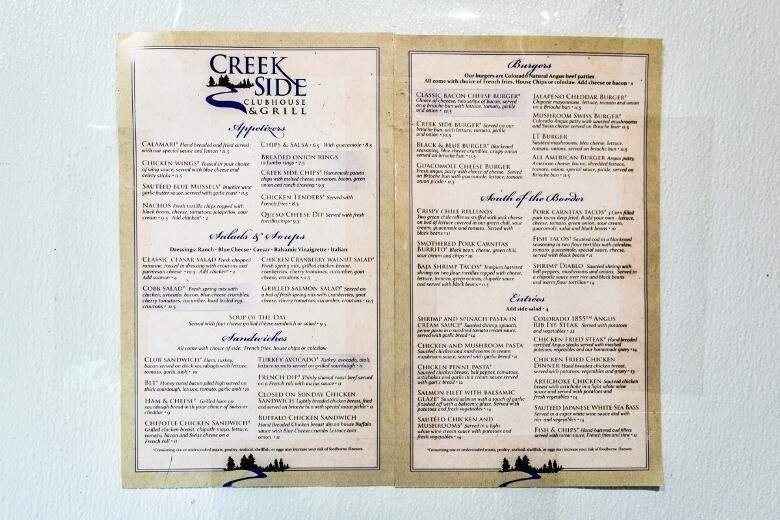 CREEK
SIDE
CLUBHOUSE
& GRILL
Appetizers
CALAMARI* Hand breaded and fried served
with our special sauce and lemon
CHICKEN WINGS* Tossed in your choice
of wing sauce, served with blue cheese and
celery sticks
SAUTEED BLUE MUSSELS*
garlic butter sauce, served with
NACHOS Fresh tortilla chips topped with
black beans, cheese, tomatoes, jalapeños, sour
cream • 9.5 Add chicken* • 2
CHIPS & SALSA • 6.5 With guacamole • 8.5
BREADED ONION RINGS
10 Jumbo rings • 7.5
CREEK SIDE CHIPS* Homemade potato
chips with melted cheese, tomatoes, bacon, green
onion and ranch dressing
CHICKEN TENDERS* Served with
French fries
QUESO CHEESE DIP Served with fresh
tortilla chips
Salads & Soups
Dressings: Ranch • Blue Cheese • Caesar • Balsamic Vinaigrette • Italian
CLASSIC CEASAR SALAD Fresh chopped
romaine, tossed in dressing with croutons and
parmesan cheese Add chicken*
Add salmon
COBB SALAD* Fresh spring mix with
chicken, avocado, bacon, blue cheese crumbles,
cherry tomatoes, cucumber, hard boiled egg,
croutons
CHICKEN CRANBERRY WALNUT SALAD*
Fresh spring mix, grilled chicken breast,
cranberries, cherry tomatoes, cucumber, goat
cheese, croutons
GRILLED SALMON SALAD* Served on
a bed of fresh spring mix with cranberries, goat
cheese, cherry tomatoes, cucumber, croutons
SOUP OF THE DAY
Served with four cheese grilled cheese sandwich or salad • 9.5
Sandwiches
All come with choice of side: French fries, house chips or coleslaw
CLUB SANDWICH* Ham, turkey,
bacon served on thick sourdough with lettuce,
tomato, garlic aioli
BLT* Honey cured bacon piled high served on
thick sourdough, lettuce, tomato, garlic aioli
HAM & CHEESE* Grilled ham on
sourdough bread with your choice of Swiss or
cheddar
CHIPOTLE CHICKEN SANDWICH*
Grilled chicken breast, chipotle mayo, lettuce,
tomato, bacon and Swiss cheese on a
French roll
TURKEY AVOCADO* Turkey, avocado, aioli,
lettuce tomato served on grilled sourdough
FRENCH DIP* Thinly shaved roast beef served
on a French roll with au jus sauce
CLOSED ON SUNDAY CHICKEN
SANDWICH Lightly breaded chicken breast, fried
and served on brioche bun with special sauce pickle
BUFFALO CHICKEN SANDWICH
Hand Breaded Chicken breast dip on house Buffalo
sauce with Blue Cheese crumbles Lettuce tom
onion
*Consuming raw or undercooked meats, poultry, seafood, shellfish, or eggs may increase your risk of foodborne illnesses.
Burgers
Our burgers are Colorado Natural Angus beef patties
All come with choice of French fries, House Chips or coleslaw. Add cheese or bacon
CLASSIC BACON CHEESE BURGER*
Choice of cheese, two strips of bacon, served
on a brioche bun with lettuce, tomato, pickle
and onion
CREEK SIDE BURGER* Served on our
brioche bun, with lettuce, tomato, pickle
and onion
BLACK & BLUE BURGER* Blackened
seasoning, blue cheese crumbles, crispy onion
served on brioche bun
GUACOMOLE CHEESE BURGER
Fresh angus patty with choice of cheese. Served
on Brioche bun with guacamole, lettuce, tomato
onion pickle
JALAPENO CHEDDAR BURGER*
Chipotle mayonnaise, lettuce, tomato and onion
on a Brioche bun
MUSHROOM SWISS BURGER*
Colorado Angus patty with sauteed mushrooms
and Swiss cheese served on Brioche bun
LT BURGER
Sauteed mushrooms, bleu cheese, lettuce,
tomato, onions, served on brioche bun
ALL AMERICAN BURGER Angus patty,
American cheese, bacon, shredded lettuce,
tomato, onions, special sauce, pickle, served on
Brioche bun
South of the Border
CRISPY CHILE RELLENOS
Two green chile rellenos stuffed with pick cheese
on bed of lettuce covered in our green chili, sour
cream, guacamole and tomato. Served with
black beans
SMOTHERED PORK CARNITAS
BURRITO* Black bean, cheese, green chili,
sour cream and chips
BAJA SHRIMP TACOS* Tempura battered
shrimp on two flour tortillas topped with cheese,
lettuce, tomato, green onions, chipotle sauce
served with black beans
PORK CARNITAS TACOS* 3 Corn filled
pork tacos deep fried. Build your own - lettuce,
cheese, tomato, green onion, sour cream,
guacamole, salsa and black beans
FISH TACOS* Sauteed cod in a blackened
seasoning in two flour tortillas with coleslaw,
tomato, guacamole, special sauce, cheese,
served with black beans
SHRIMP DIABLO Sauteed shrimp with
bell peppers, mushrooms and onions. Served in
a chipotle sauce over rice and black beans
and warm flour tortillas
Entrées
Add side salad • 4
SHRIMP AND SPINACH PASTA IN
CREAM SAUCE* Sauteed shrimp, spinach,
penne pasta in a sauteed tomato cream sauce,
served with garlic bread
CHICKEN AND MUSHROOM PASTA
Sauteed chicken and mushrooms in cream
mushroom sauce, served with garlic bread
CHICKEN PENNE PASTA*
Sauteed chicken breast, bell pepper, tomatoes,
artichokes and garlic in a cream sauce served
with garlic bread
SALMON FILET WITH BALSAMIC
GLAZE* Sauteed salmon with a touch of garlic
finished off with a balsamic glaze. Served with
potatoes and fresh vegetables
SAUTEED CHICKEN AND
MUSHROOMS* Served in a light
white wine cream sauce with potatoes and
fresh vegetables
COLORADO 1855™ ANGUS
RIB EYE STEAK Served with potatoes
and vegetables
CHICKEN FRIED STEAK* Hand breaded
certified Angus steaks served with mashed
potatoes, vegetables and our homemade gravy
CHICKEN FRIED CHICKEN
DINNER Hand breaded chicken breast,
served with potatoes, vegetables and gravy
ARTICHOKE CHICKEN Sauteed chicken
breast with artichoke in a light white wine
sauce with potatoes and fresh vegetables
SAUTEED JAPANESE WHITE SEA BASS
Served in a caper white wine sauce and with
rice and vegetables
FISH & CHIPS* Hand-battered cod fillets
served with tartar sauce, French fries and slaw
*Consuming raw or undercooked meats, poultry, seafood, shellfish, or eggs may increase your risk of foodborne illnesses.